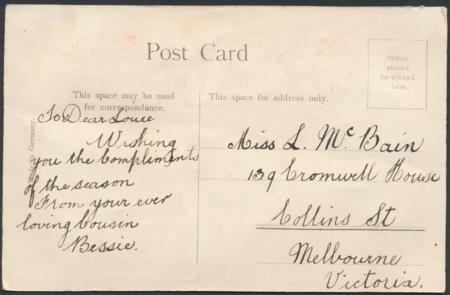 Post Card
Stamp
should
be affixed
here
This space may be used
for correspondence.
This space for address only.
To Dear Louie
Wishing
you the Compliments
of the season
From your ever
loving Cousin
Bessie.
Miss L. McBain
139 Cromwell House
Collins St
Melbourne
Victoria.
Germany.